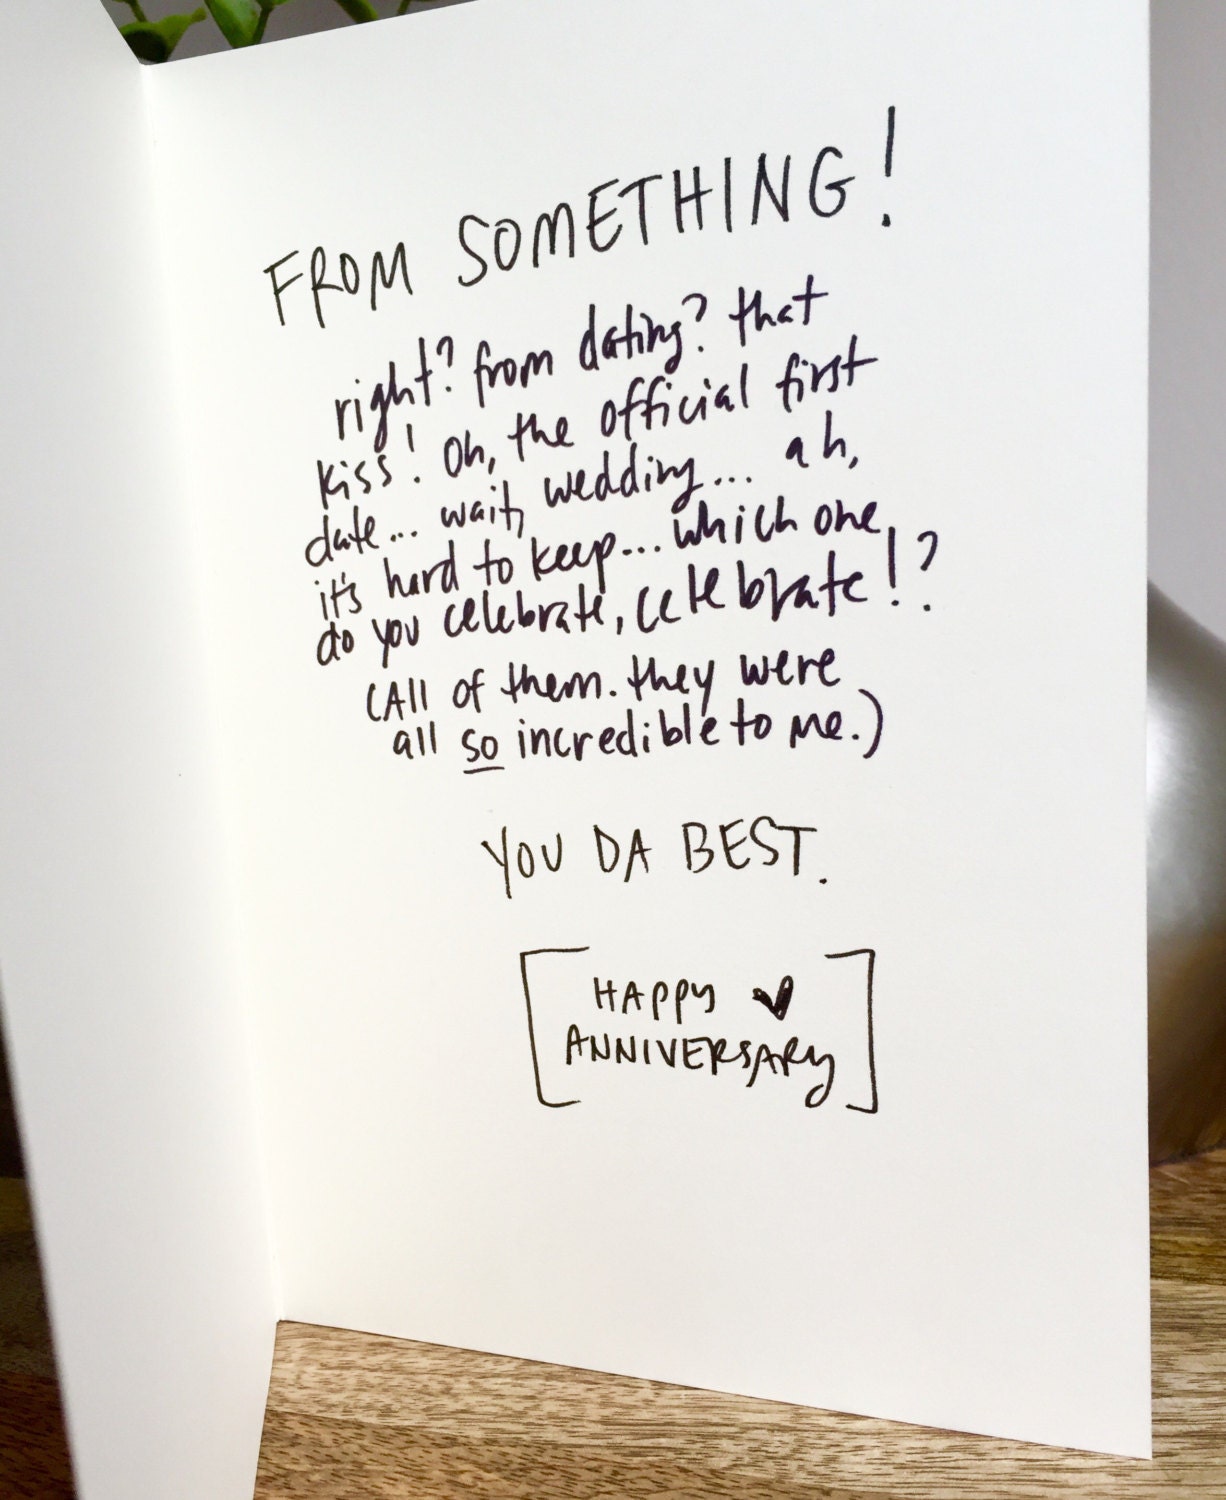 FROM SOMETHING!
right? from dating? that
kiss! oh, the official first
date... wait, wedding... ah,
it's hard to keep... which one
do you celebrate, celebrate!?
(All of them. they were
all so incredible to me.)
YOU DA BEST.
HAPPY ♥
ANNIVERSARY